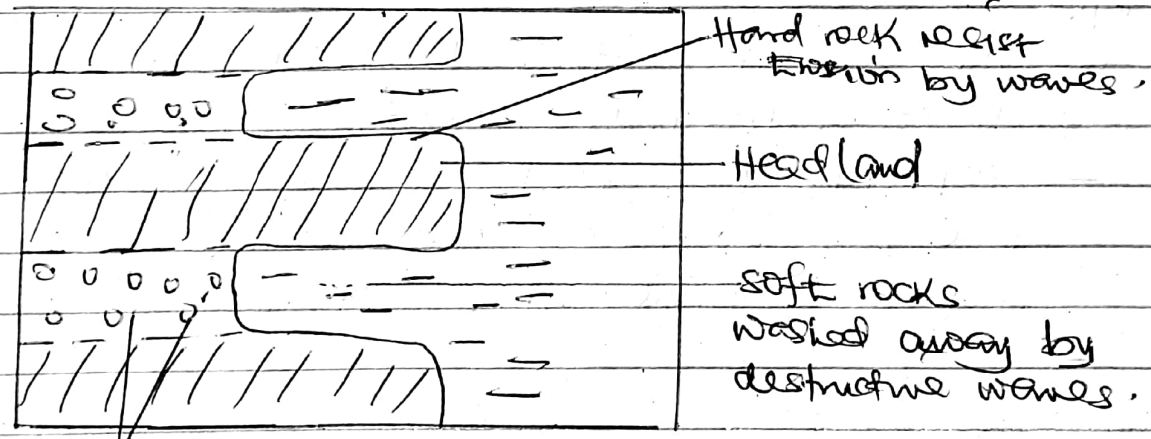 Hard rock resist
Erosion by waves.
Headland
soft rocks
washed away by
destructive waves.